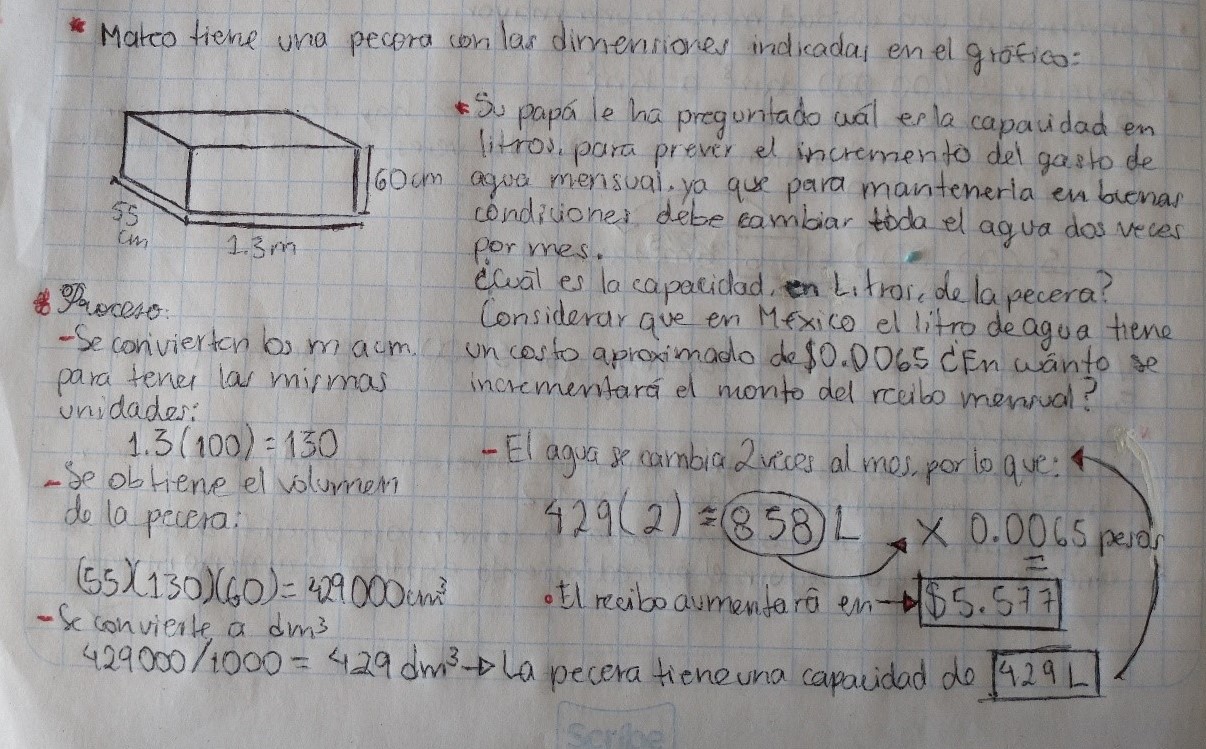 * Marco tiene una pecera con las dimensiones indicadas en el gráfico:
60cm
55
cm
1.3m
* Su papá le ha preguntado cuál es la capacidad en
litros, para prever el incremento del gasto de
agua mensual, ya que para mantenerla en buenas
condiciones debe cambiar toda el agua dos veces
por mes.
¿Cuál es la capacidad, en Litros, de la pecera?
Considerar que en México el litro de agua tiene
un costo aproximado de $0.0065 ¿En cuánto se
incrementará el monto del recibo mensual?
* Proceso:
- Se convierten los m a cm.
para tener las mismas
unidades:
1.3(100)=130
- Se obtiene el volumen
de la pecera:
(55)(130)(60)=429000cm³
- Se convierte a dm³
429000/1000 = 429 dm³ → La pecera tiene una capacidad de 429 L
- El agua se cambia 2 veces al mes, por lo que:
429(2) = 858 L × 0.0065 pesos
=
• El recibo aumentará en → $5.577
Scribe